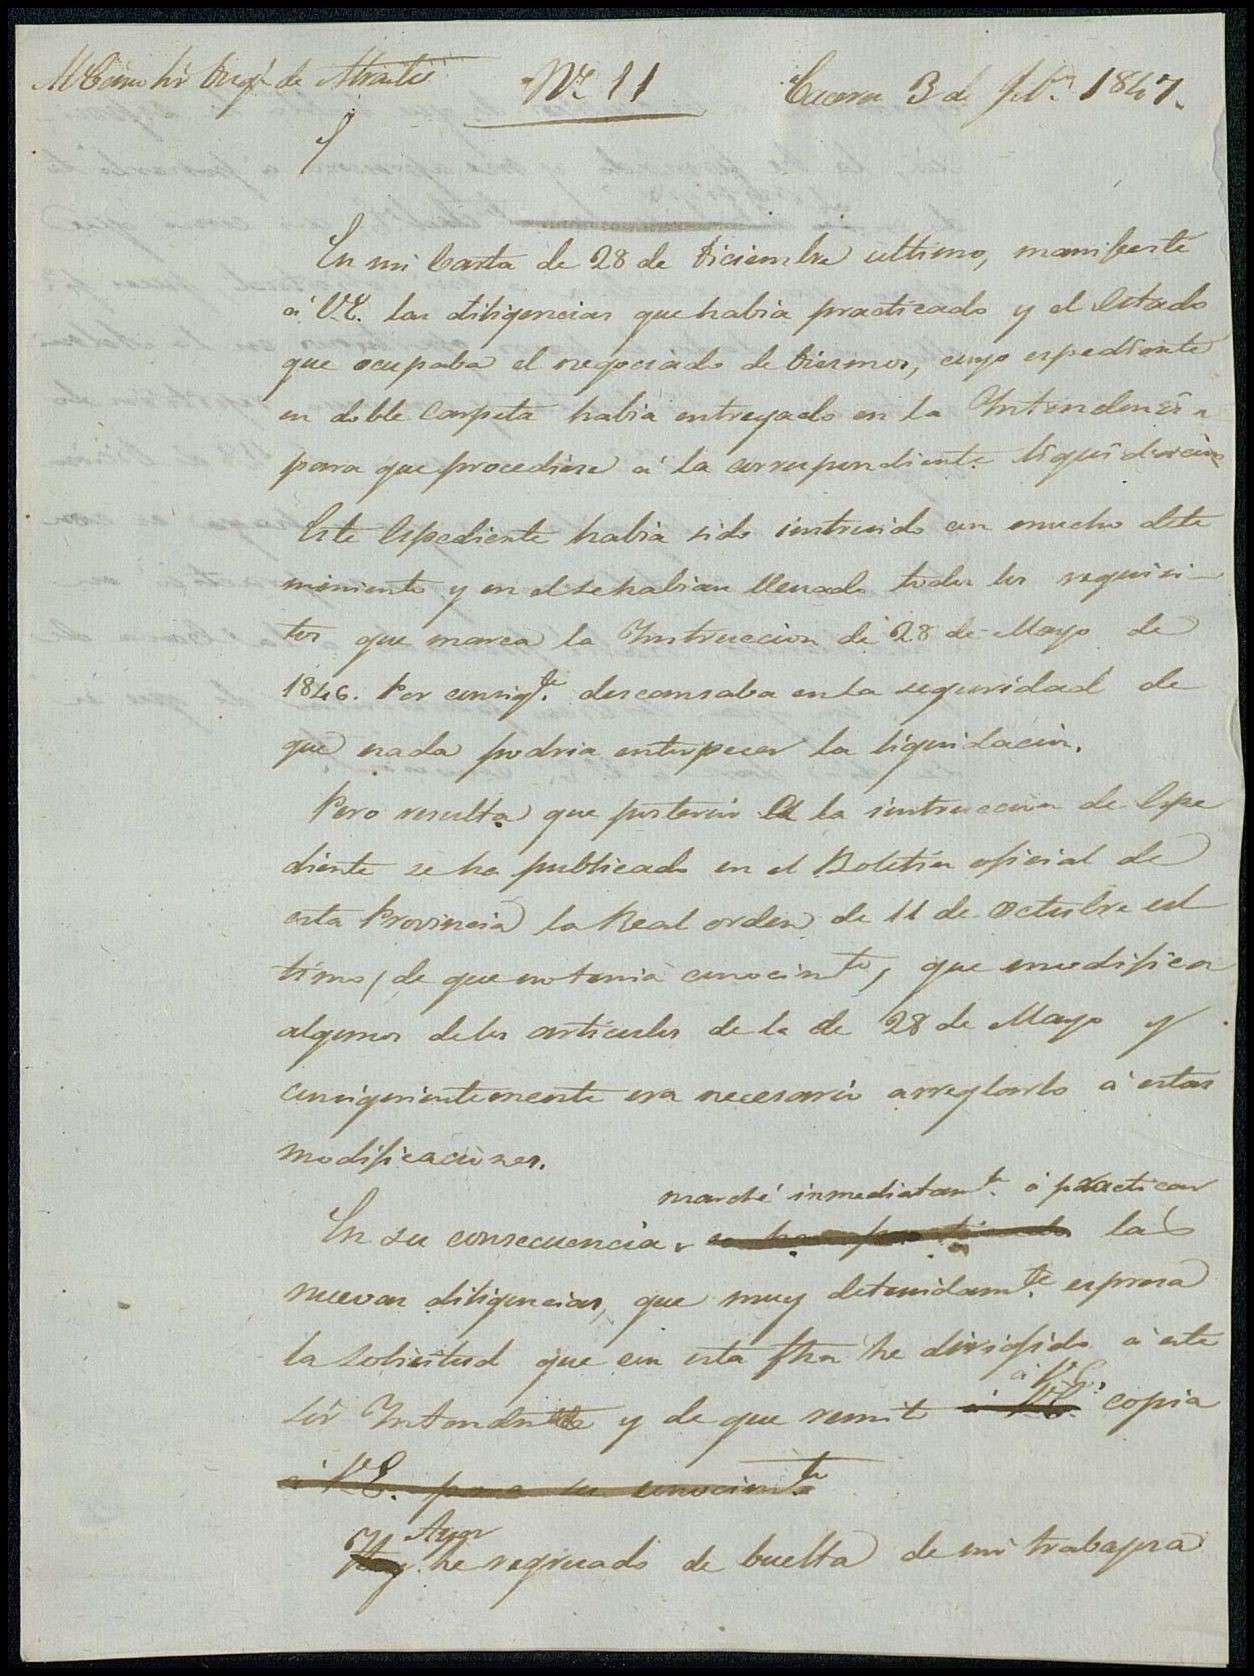 Nº 11
3 de 1847.
En mi Carta de 28 de Diciembre ultimo, manifesté
á V.E. las diligencias que habia practicado y el Estado
que ocupaba el negociado de Diezmos, cuyo espediente
en doble Carpeta habia entregado en la Intendencia
para que procediese á la correspondiente liquidacion
Este Espediente habia sido instruido con mucho dete
nimiento y en el se habian llenado todos los requisi-
tos que marca la Instruccion de 28 de Mayo de
1846. Por consigte. descansaba en la seguridad de
que nada podria entorpecer la liquidacion.
Pero resulta que posterior á la instruccion de Espe
diente se ha publicado en el Boletin oficial de
esta Provincia la Real orden de 11 de Octubre ul
timo, de que no tenia conocimto, que modifica
algunos de los articulos de la de 28 de Mayo y
consiguientemente era necesario arreglarlo á estas
modificaciones.
marché inmediatamte. á practicar
En su consecuencia, se ha practicado las
nuevas diligencias, que muy detenidamte. espresa
la solicitud que con esta fha he dirigido á este
á V.E.
Sôr Intendente y de que remito á V.E. copia
á V.E. para su conocimto
Ayer
Hoy he regresado de buelta de mi trabajosa